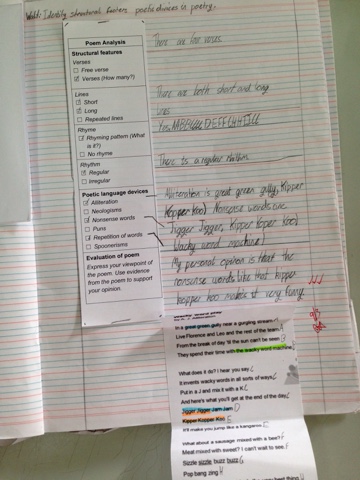 Walt: Identify structural features poetic devices in poetry.
Poem Analysis
Structural features
Verses
Free verse
Verses (How many?)
Lines
Short
Long
Repeated lines
Rhyme
Rhyming pattern (What is it?)
No rhyme
Rhythm
Regular
Irregular
Poetic language devices
Alliteration
Neologisms
Nonsense words
Puns
Repetition of words
Spoonerisms
Evaluation of poem
Express your viewpoint of the poem. Use evidence from the poem to support your opinion.
There are five verses
There are both short and long
lines
There is a regular rhythm
Alliteration is great green gully, Kipper
Kopper Koo) Nonsense words are
Jigger Jigger, Kipper Koper Koo)
Wacky word machine)
My personal opinion is that the
nonsense words like that kipper
kopper koo makes it very funny
In a great green gully near a gurgling stream
Live Florence and Leo and the rest of the team
From the break of day 'til the sun can't be seen
They spend their time with the wacky word machine
What does it do? I hear you say
It invents wacky words in all sorts of ways
Put in a J and mix it with a K
And here's what you'll get at the end of the day
Jigger Jigger Jam Jam D
Kipper Kopper Koo E
It'll make you jump like a kangaroo E
What about a sausage mixed with a bee? F
Meat mixed with sweet? I can't wait to see F
Sizzle sizzle buzz buzz G
Pop bang zing H